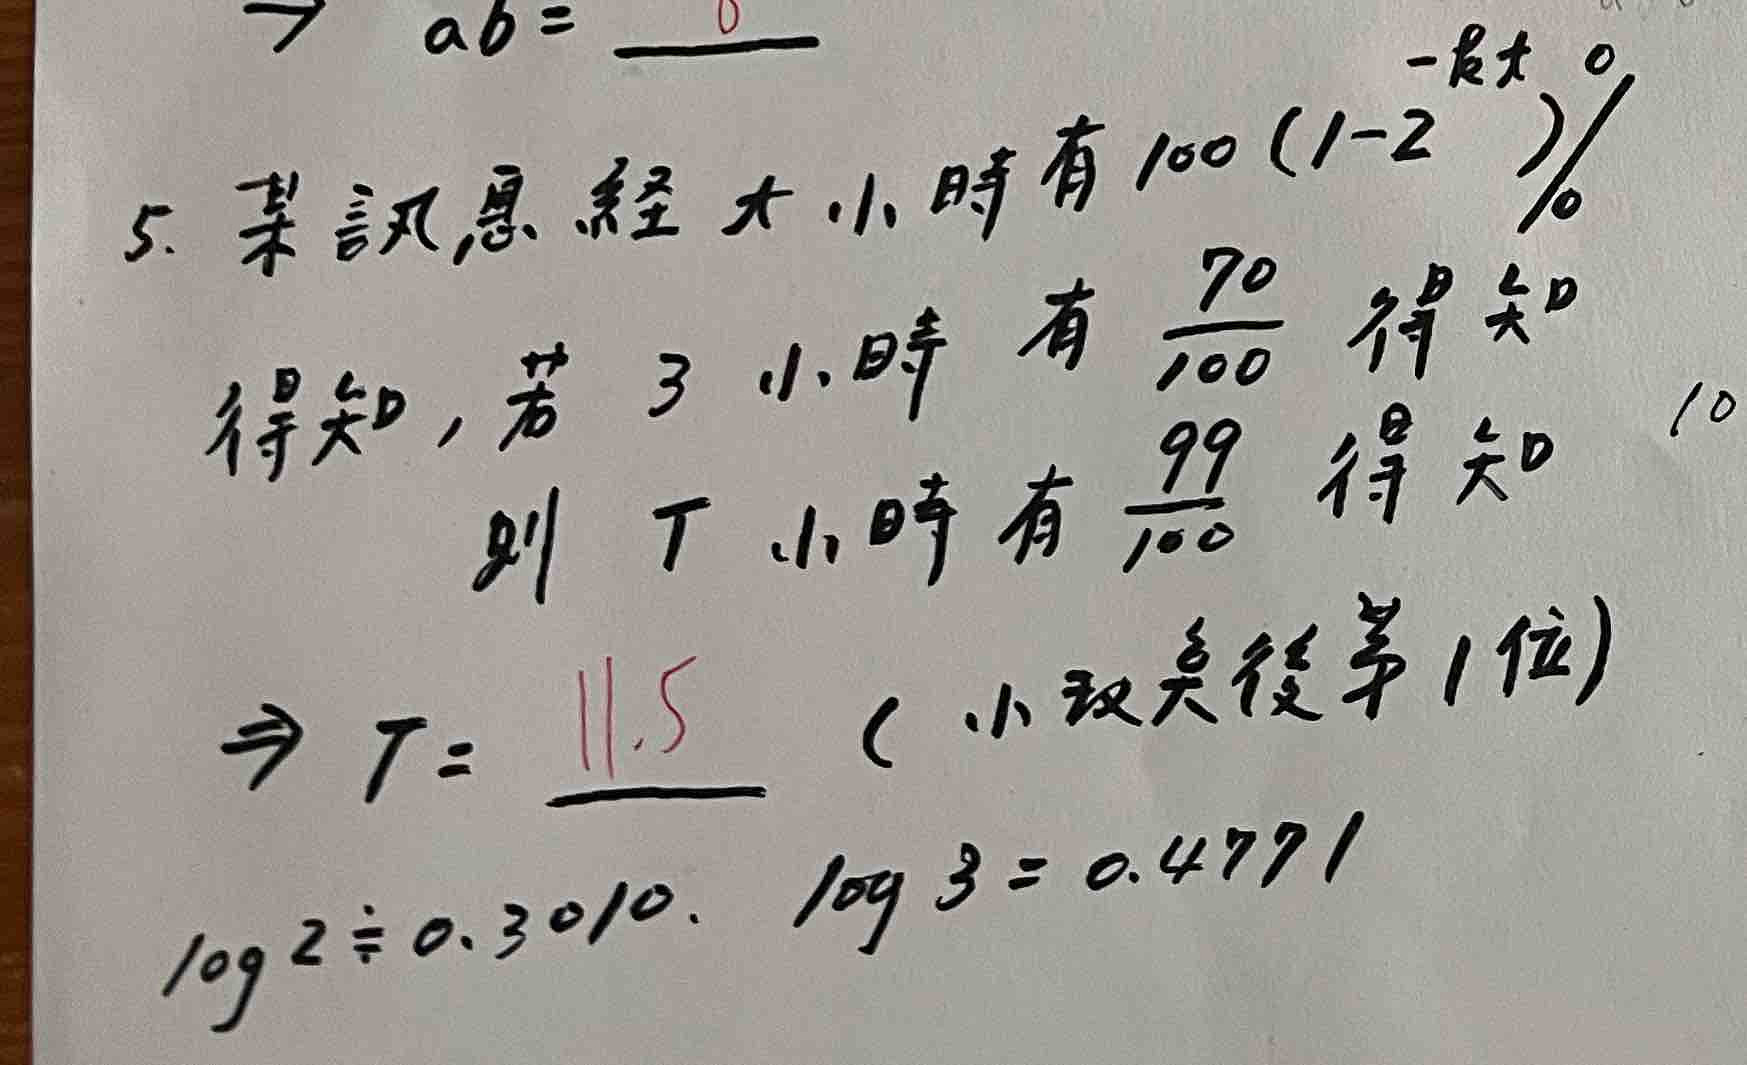 → ab = 0
5. 某訊息経 t 小時有 100 (1-2^{-kt})%
得知, 若 3 小時 有 70/100 得知
10
則 T 小時有 99/100 得知
⇒ T = 11.5 ( 小数点後第 1 位)
log 2 ≑ 0.3010. log 3 = 0.4771